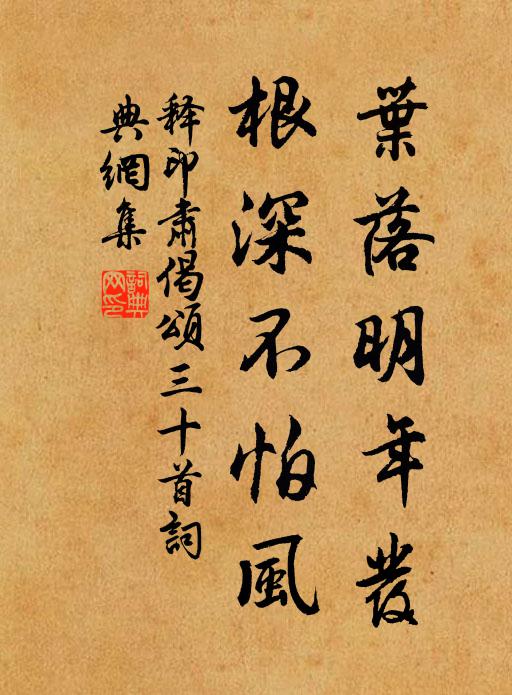 葉落明年發
根深不怕風
释印肅偈頌三十首詞
典網集
詞典網印